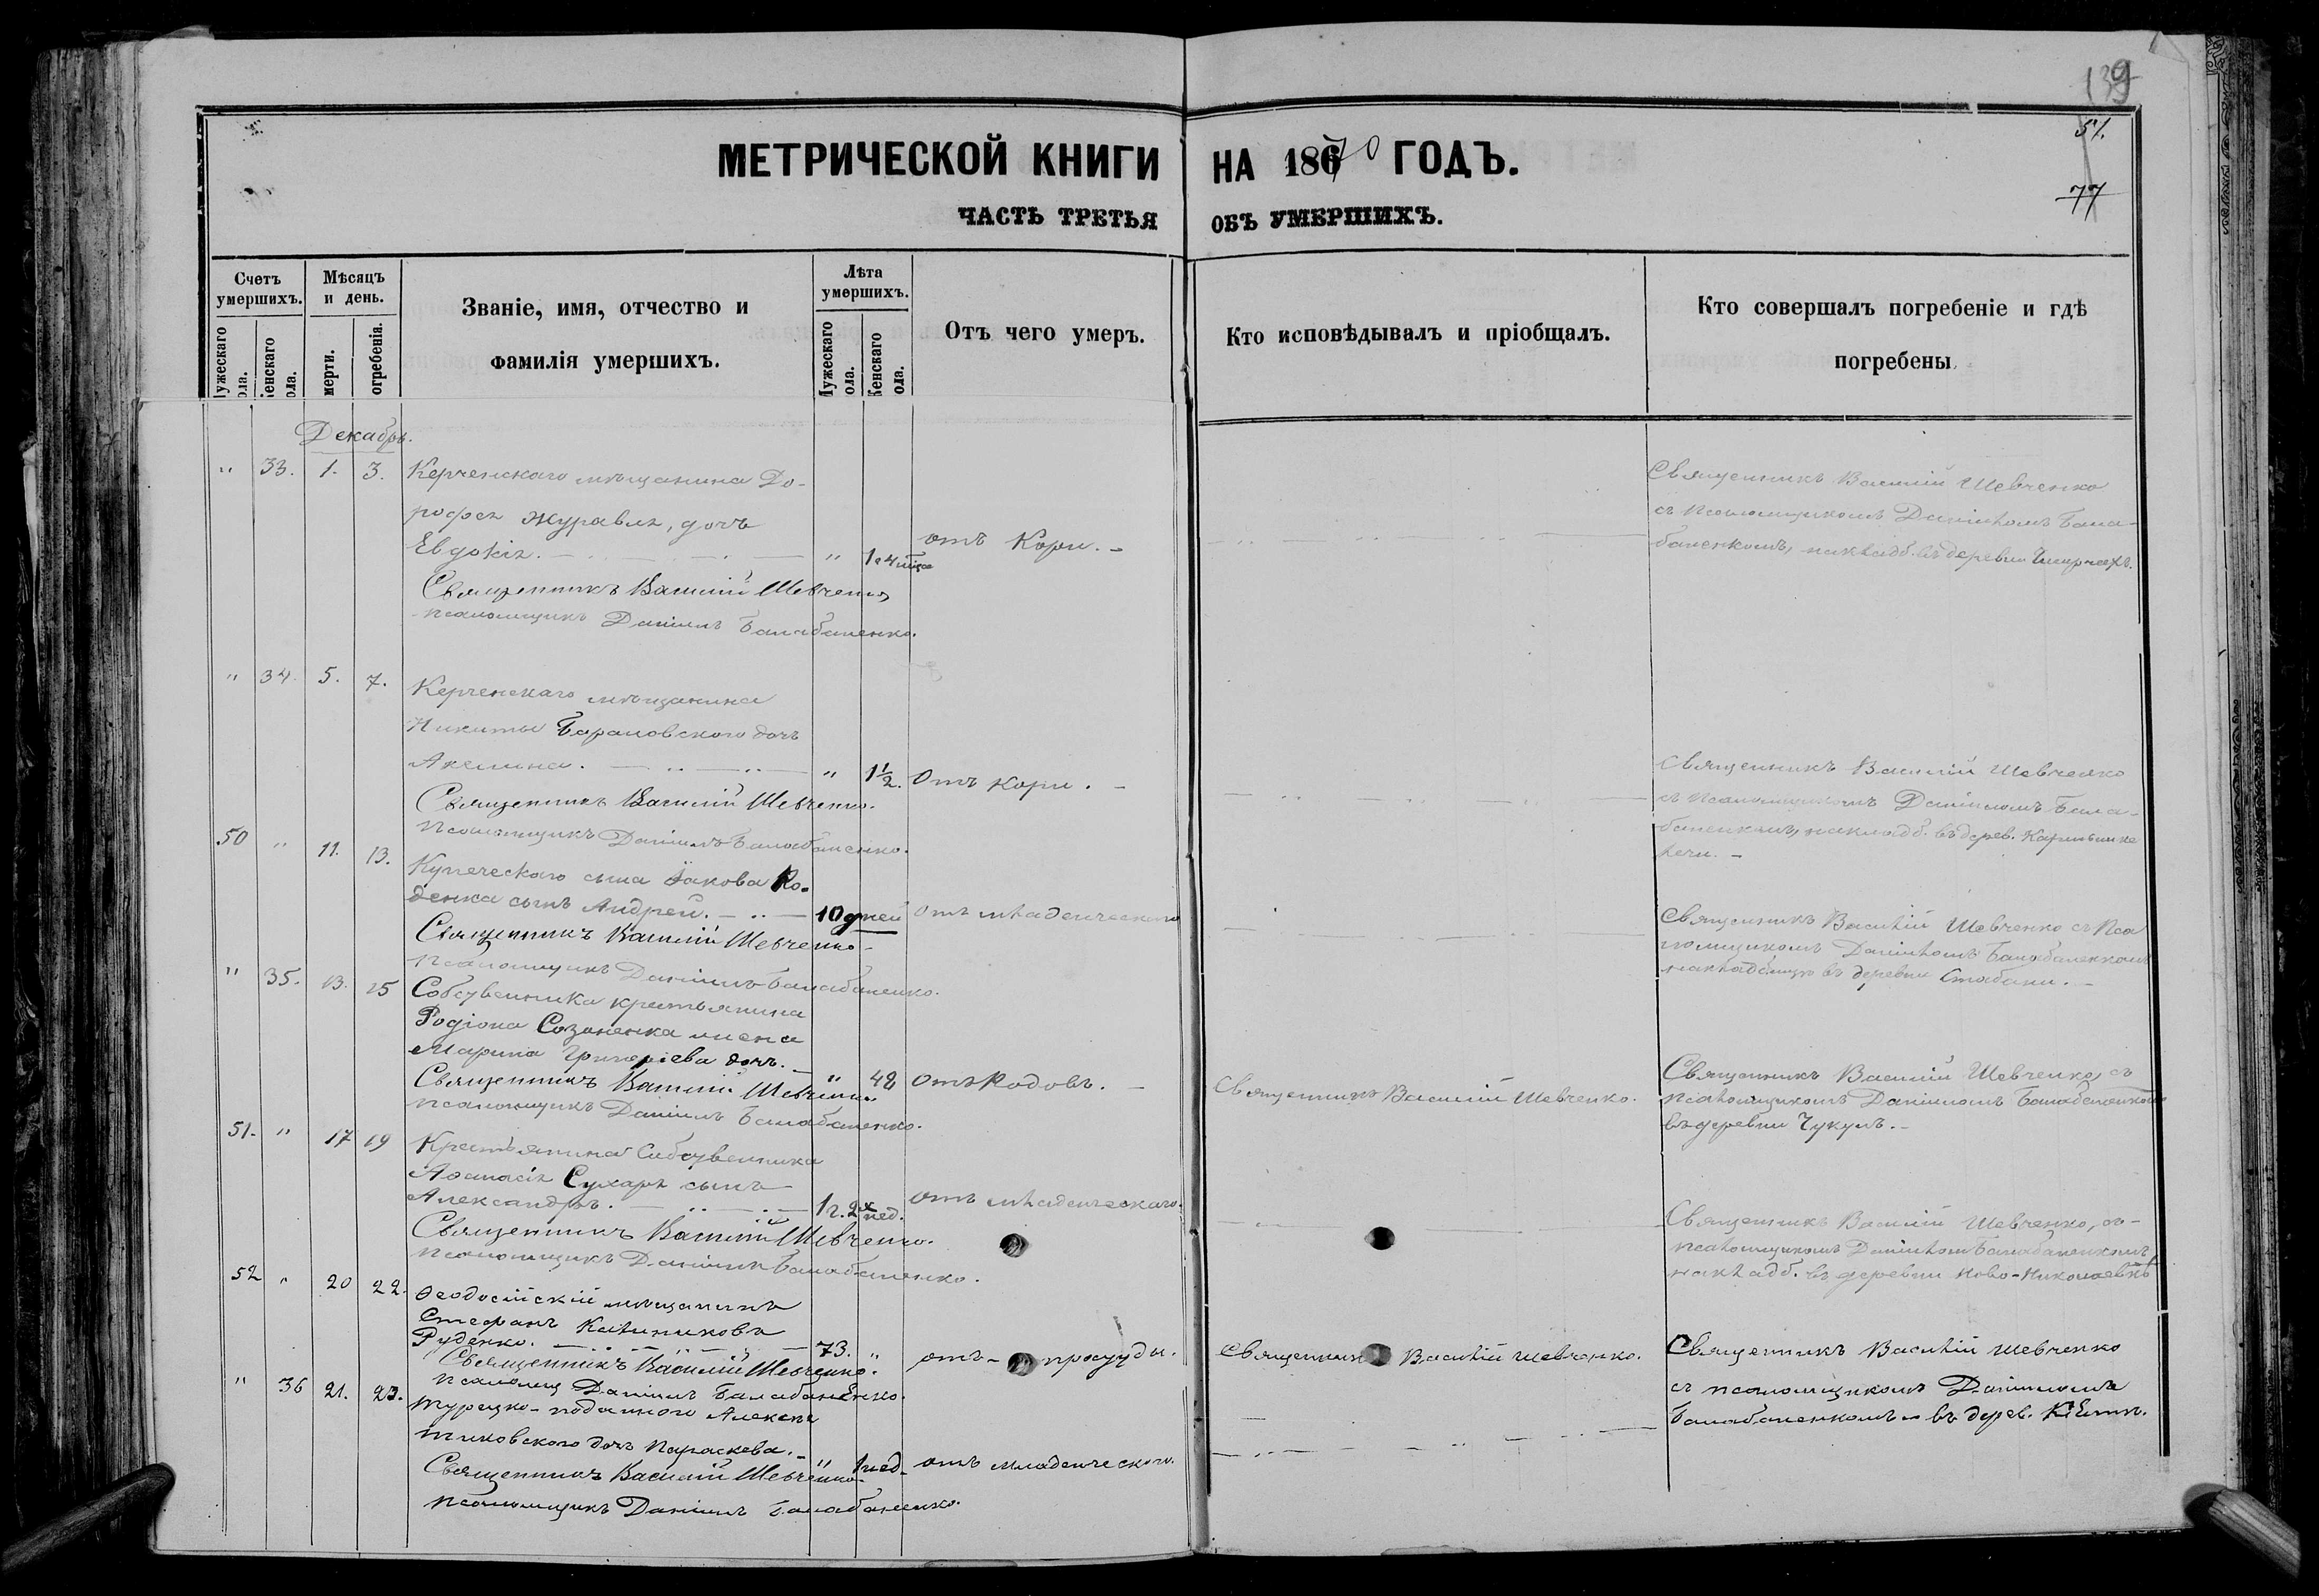 139
51.
77
МЕТРИЧЕСКОЙ КНИГИ НА 1870 ГОДЪ.
ЧАСТЬ ТРЕТЬЯ ОБЪ УМЕРШИХЪ.
Счетъ умершихъ.
Мѣсяцъ и день.
Званіе, имя, отчество и фамилія умершихъ.
Лѣта умершихъ.
Отъ чего умеръ.
Кто исповѣдывалъ и пріобщалъ.
Кто совершалъ погребеніе и гдѣ погребены
ужескаго ола.
енскаго ола.
мерти.
огребенія.
ужескаго ола.
Женскаго ола.
Декабрь.
" 33. 1. 3. Керченскаго мѣщанина До-
рофея Журавля, дочь
Евдокія. " 1 г. 4 отъ Кори.
Священникъ Василій Шевченко
псаломщикъ Даніилъ Балабаненко.
Священникъ Василій Шевченко
съ Псаломщикомъ Даніиломъ Бала-
баненкомъ, на кладб. въ деревни
" 34. 5. 7. Керченскаго мѣщанина
Никиты Барановского дочь
Акелина. " 1½. Отъ кори.
Священникъ Василій Шевченко.
Псаломщикъ Даніилъ Балабаненко.
Священникъ Василій Шевченко
съ Псаломщикомъ Даніиломъ Бала-
баненкомъ, на кладб. въ дерев.
50 " 11. 13. Купеческаго сына Іакова Ко-
денка сынъ Андрей. 10 дней Отъ младенческаго
Священникъ Василій Шевченко
Псаломщикъ Даніилъ Балабаненко.
Священникъ Василій Шевченко съ Пса
ломщикомъ Даніиломъ Балабаненкомъ
на кладбищѣ въ деревни
" 35. 13. 15 Собственника крестьянина
Родіона Созоненка жена
Марина Григоріева дочь.
" 42 Отъ Родовъ.
Священникъ Василій Шевченко
псаломщикъ Даніилъ Балабаненко.
Священникъ Василій Шевченко.
Священникъ Василій Шевченко, съ
псаломщикомъ Даніиломъ Балабаненкомъ
въ деревни Чукулъ.
51. " 17 19 Крестьянина Собственника
Аѳанасія Сухаря сынъ
Александръ. 1 г. 2х нед. отъ младенческаго.
Священникъ Василій Шевченко.
псаломщикъ Даніилъ Балабаненко.
Священникъ Василій Шевченко, съ
псаломщикомъ Даніиломъ Балабаненкомъ
на кладб. въ деревни Ново-Николаевкѣ
52 " 20 22. Ѳеодосійскій мѣщанинъ
Стефанъ Калиниковъ
Руденко. 73. " отъ простуды.
Священникъ Василій Шевченко.
псаломщ Даніилъ Балабаненко.
Священникъ Василій Шевченко.
Священникъ Василій Шевченко
съ псаломщикомъ Даніиломъ
Балабаненкомъ въ дерев.
" 36 21. 23. Турецко-подданного
дочь Параскева. " 1 нед. отъ младенческого.
Священникъ Василій Шевченко
псаломщикъ Даніилъ Балабаненко.